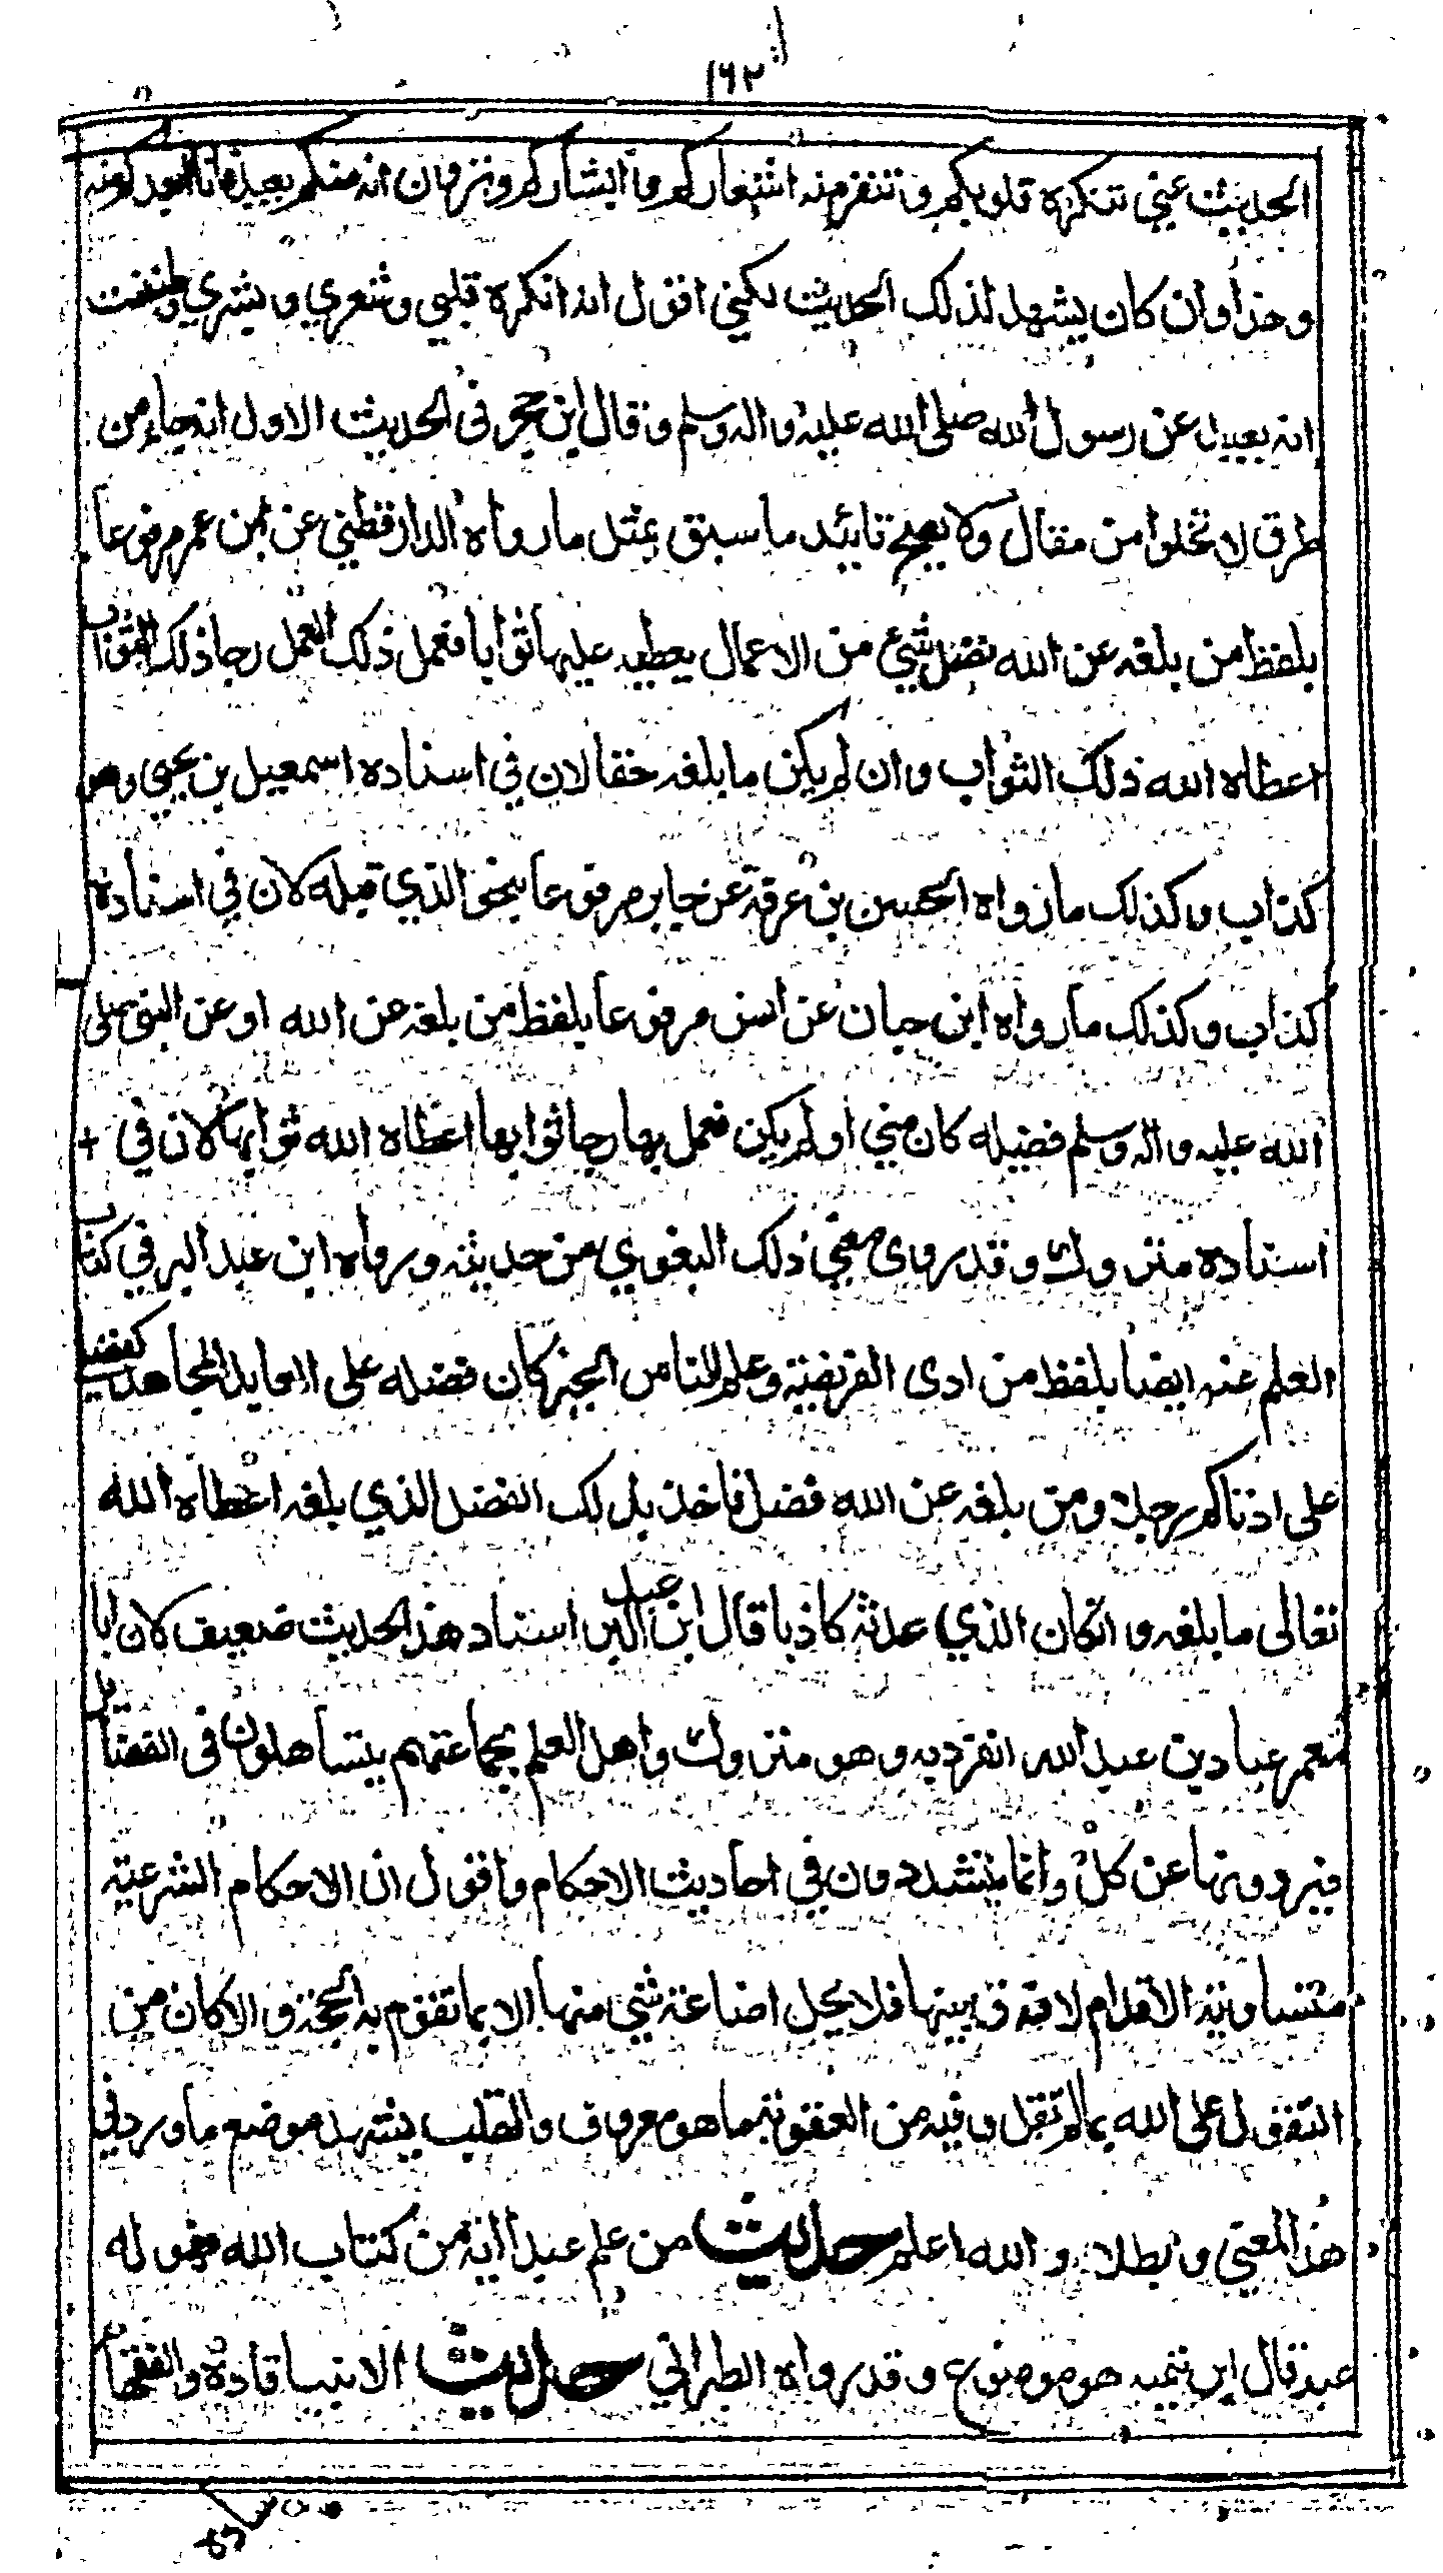 ١٦٢
الحديث عني تنكره قلوبكم وتنفر منه اشعاركم وابشاركم وترون انه منكم بعيد فانا ابعدكم منه
وهذا وان كان يشهد لذلك الحديث لكني اقول انه انكره قلبي وشعري وبشري وظننت
انه بعيد عن رسول الله صلى الله عليه واله وسلم وقال ابن حجر في الحديث الاول انه جاء من
طرق لا تخلوا من مقال ولا يصح تائيد ما سبق بمثل ما رواه الدارقطني عن ابن عمر مرفوعا
بلفظ من بلغه عن الله فضل شيء من الاعمال يعطيه عليها ثوابا فعمل ذلك العمل رجا ذلك الثواب
اعطاه الله ذلك الثواب وان لم يكن ما بلغه حقا لان في اسناده اسمعيل بن يحيى وهو
كذاب وكذلك ما رواه الحسن بن عرفة عن جابر مرفوعا بنحو الذي قبله لان في اسناده
كذاب وكذلك ما رواه ابن حبان عن انس مرفوعا بلفظ من بلغه عن الله او عن النبي صلى
الله عليه واله وسلم فضيله كان مني او لم يكن فعمل بها رجا ثوابها اعطاه الله ثوابها لان في +
اسناده متروك وقد روى معنى ذلك البغوي من حديثه ورواه ابن عبد البر في كتاب
العلم عنه ايضا بلفظ من ادى الفريضة وعلم الناس الخير كان فضله على العابد المجاهد كفضلي
على ادناكم رجلا ومن بلغه عن الله فضل فاخذ بذلك الفضل الذي بلغه اعطاه الله
تعالى ما بلغه وانكان الذي حدثه كاذبا قال ابن عبد البر اسناد هذا الحديث ضعيف لان ابا
معمر عباد بن عبد الله انفرد به وهو متروك واهل العلم بجماعتهم يتساهلون في الفضايل
فيردونها عن كل وانما يتشددون في احاديث الاحكام واقول ان الاحكام الشرعية
متساوية الاقدام لا فرق بينها فلا يحل اضاعة شي منها الا بما تقوم به الحجة والا كان من
التقول على الله بما لم تقل وفيه من العقوبة ما هو معروف والقلب يشهد بوضع ما ورد في
هذا المعنى وبطلا والله اعلم حديث من علم عبدا اية من كتاب الله فهو له
عبد قال ابن تيميه هو موضوع وقد رواه الطبراني حديث الانبيا قادة والفقها